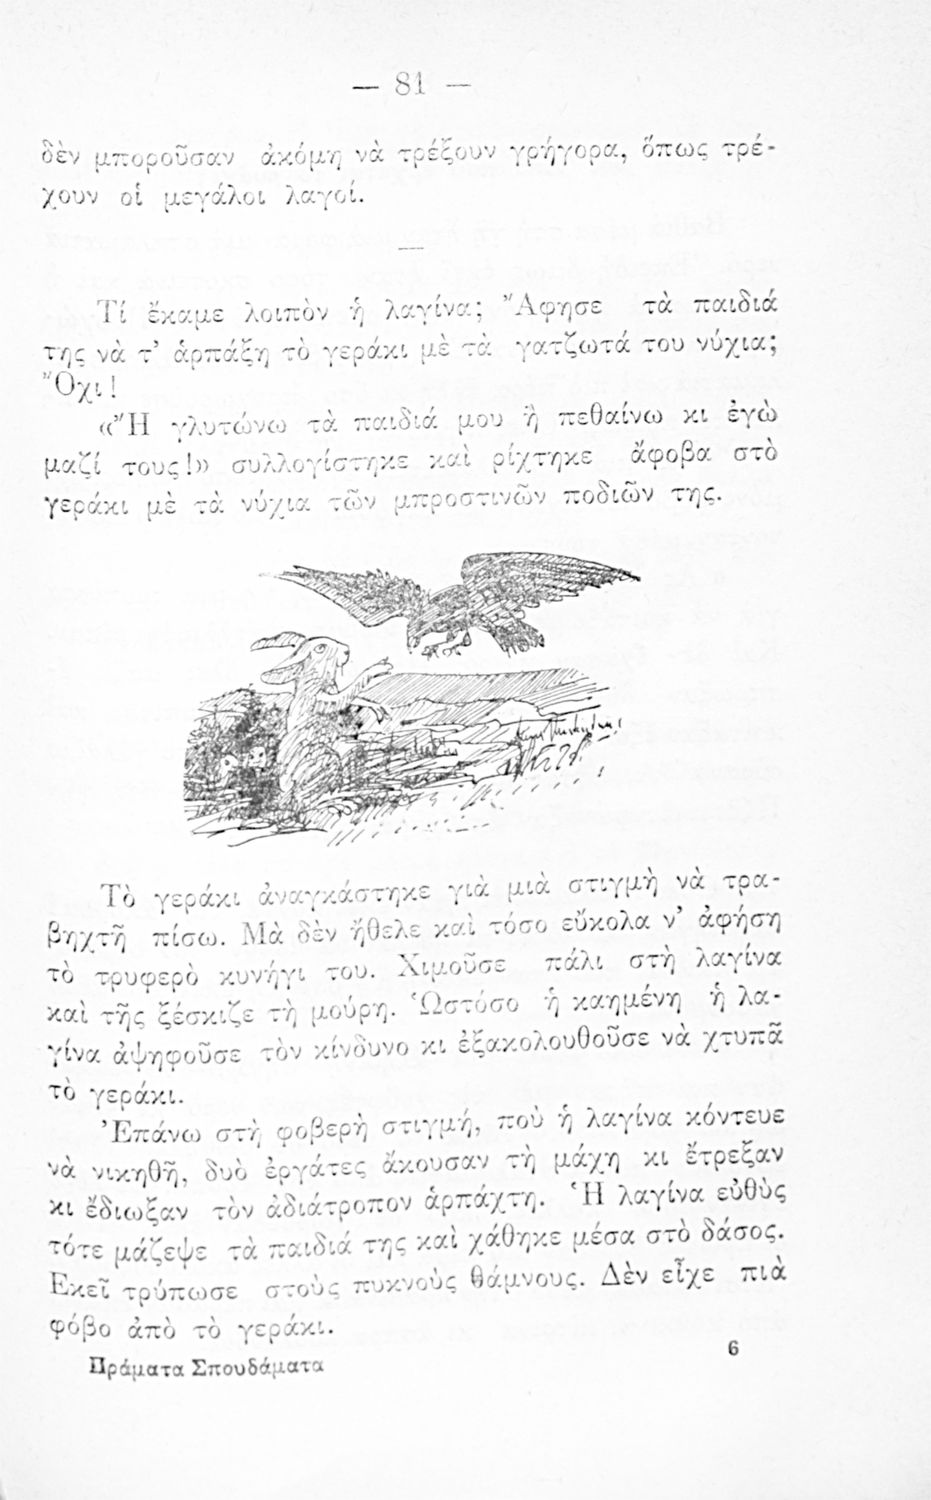 — 81 —
δὲν μποροῦσαν ἀκόμη νὰ τρέξουν γρήγορα, ὅπως τρέ-
χουν οἱ μεγάλοι λαγοί.
Τί ἔκαμε λοιπὸν ἡ λαγίνα; Ἄφησε τὰ παιδιά
της νὰ τ’ ἁρπάξῃ τὸ γεράκι μὲ τὰ γατζωτά του νύχια;
Ὄχι!
«Ἢ γλυτώνω τὰ παιδιά μου ἢ πεθαίνω κι ἐγὼ
μαζί τους!» συλλογίστηκε καὶ ρίχτηκε ἄφοβα στὸ
γεράκι μὲ τὰ νύχια τῶν μπροστινῶν ποδιῶν της.
Τὸ γεράκι ἀναγκάστηκε γιὰ μιὰ στιγμὴ νὰ τρα-
βηχτῆ πίσω. Μὰ δὲν ἤθελε καὶ τόσο εὔκολα ν’ ἀφήση
τὸ τρυφερὸ κυνήγι του. Χιμοῦσε πάλι στὴ λαγίνα
καὶ τῆς ξέσκιζε τὴ μούρη. Ὡστόσο ἡ καημένη ἡ λα-
γίνα ἀψηφοῦσε τὸν κίνδυνο κι ἐξακολουθοῦσε νὰ χτυπᾶ
τὸ γεράκι.
Ἐπάνω στὴ φοβερὴ στιγμή, ποὺ ἡ λαγίνα κόντευε
νὰ νικηθῆ, δυὸ ἐργάτες ἄκουσαν τὴ μάχη κι ἔτρεξαν
κι ἔδιωξαν τὸν ἀδιάτροπον ἁρπάχτη. Ἡ λαγίνα εὐθὺς
τότε μάζεψε τὰ παιδιά της καὶ χάθηκε μέσα στὸ δάσος.
Ἐκεῖ τρύπωσε στοὺς πυκνοὺς θάμνους. Δὲν εἶχε πιὰ
φόβο ἀπὸ τὸ γεράκι.
Πράματα Σπουδάματα 6